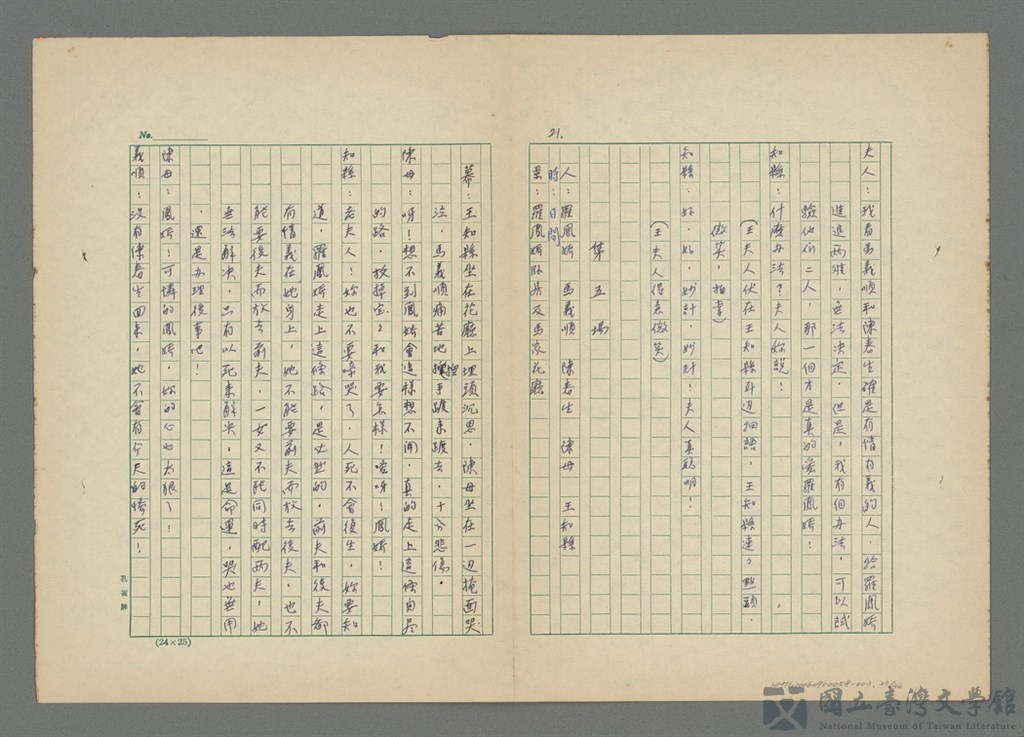 21.
夫人：我看馬義順和陳春生確是有情有義的人，給羅鳳嬌
進退兩難，無法決定，但是，我有個办法，可以試
驗他们二人，那一個才是真的愛羅鳳嬌！
知縣：什麼办法？夫人妳說！
（王夫人伏在王知縣耳边細語，王知縣連々點頭，
微笑，拍掌）
知縣：好，好，妙計，妙計！夫人真聰明！
（王夫人得意微笑）
第五場
人：羅鳳嬌 馬義順 陳春生 陳母 王知縣
時：日間
景：羅鳳嬌臥房及馬家花廳
No.
幕：王知縣坐在花廳上埋頭沉思，陳母坐在一边掩面哭
泣，馬義順痛苦地搓手踱來踱去，十分悲傷。
陳母：呀！想不到鳳嬌會這樣想不開，真的走上這條自尽
的路，放掉宝々和我要怎樣！唉呀！鳳嬌！
知縣：老夫人！妳也不要哭了，人死不會復生，妳要知
道，羅鳳嬌走上這條路，是必然的，前夫和後夫都
有情義在她身上，她不能要前夫而放去後夫，也不
能要後夫而放去前夫，一女又不能同時配兩夫，她
無法解决，只有以死來解决，這是命運，哭也無用
，還是办理後事吧！
陳母：鳳嬌！可憐的鳳嬌，妳的心也太狠了！
義順：沒有陳春生回來，她不會有今天的慘死！
孔雀牌
(24×25)
國立臺灣文學館
National Museum of Taiwan Literature